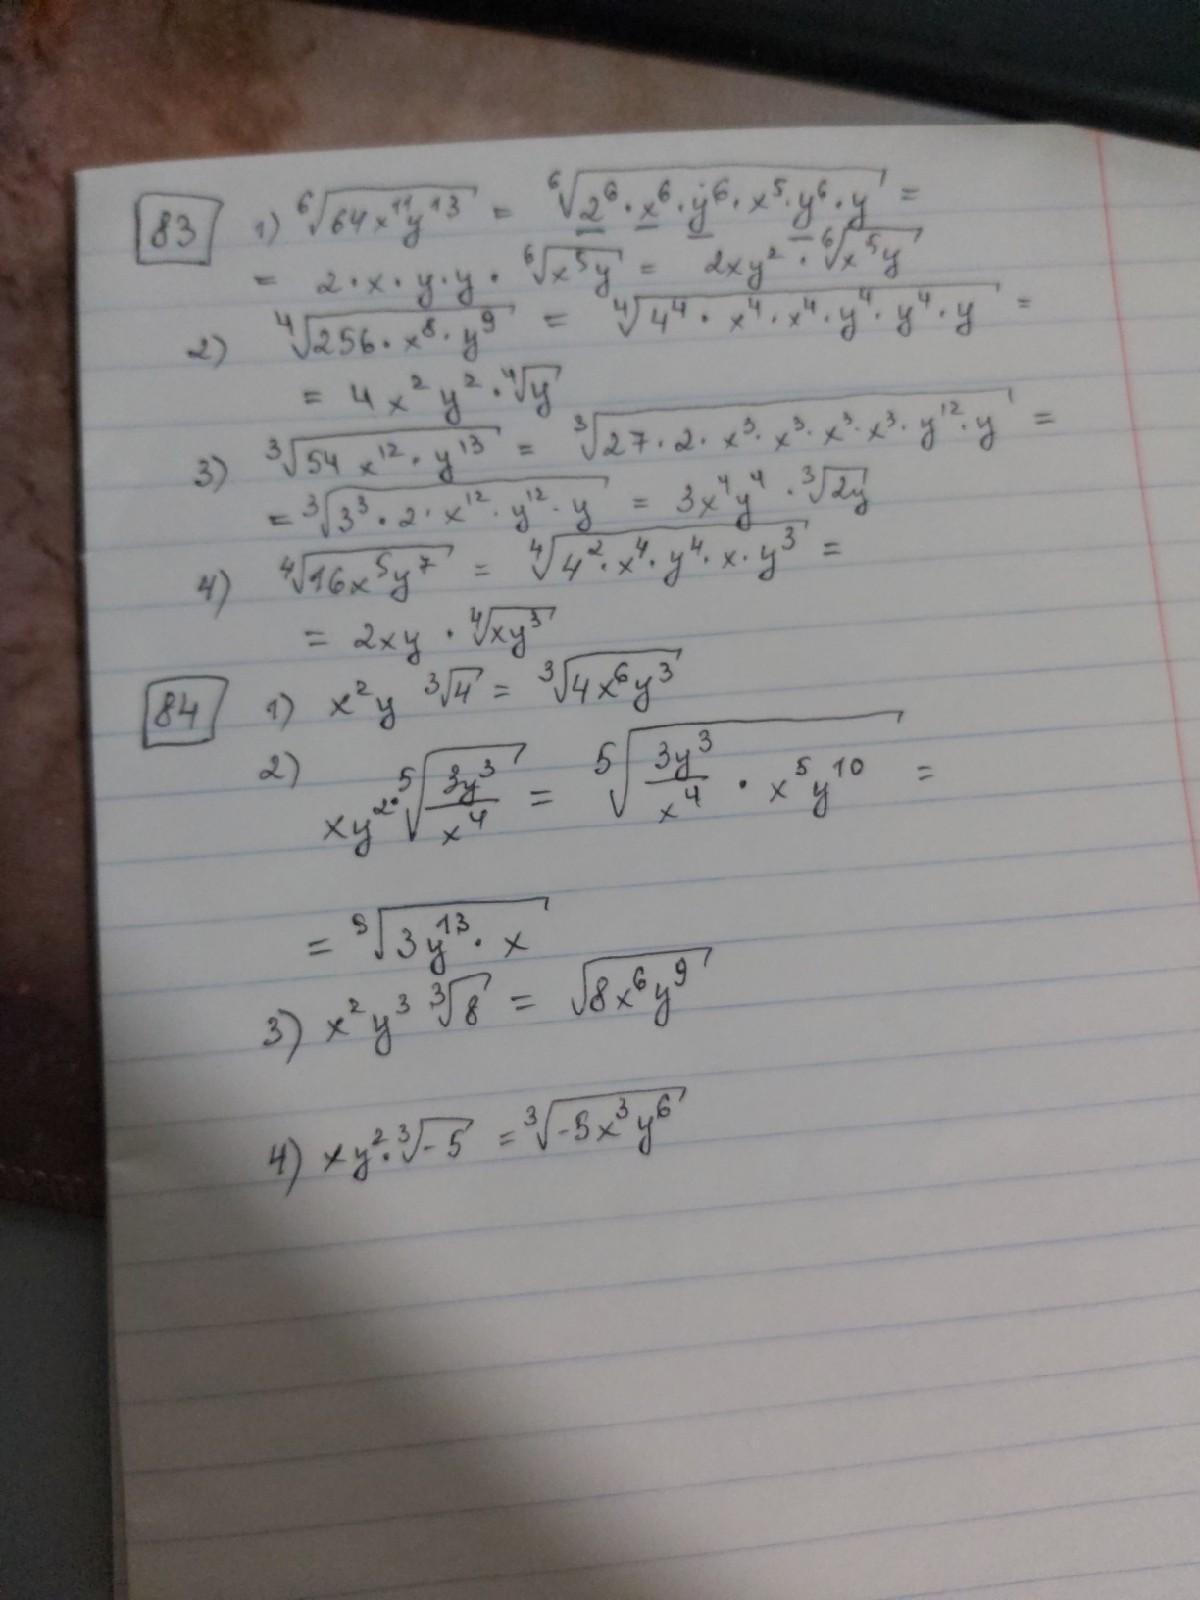 83 1) ⁶√(64x¹¹y¹³) = ⁶√(2⁶·x⁶·y⁶·x⁵·y⁶·y) =
= 2·x·y·y· ⁶√(x⁵y) = 2xy²· ⁶√(x⁵y)
2) ⁴√(256·x⁸·y⁹) = ⁴√(4⁴·x⁴·x⁴·y⁴·y⁴·y) =
= 4x²y²·⁴√y
3) ³√(54x¹²·y¹³) = ³√(27·2·x³·x³·x³·x³·y¹²·y) =
= ³√(3³·2·x¹²·y¹²·y) = 3x⁴y⁴·³√(2y)
4) ⁴√(16x⁵y⁷) = ⁴√(4²·x⁴·y⁴·x·y³) =
= 2xy·⁴√(xy³)
84 1) x²y ³√4 = ³√(4x⁶y³)
2) xy²·⁵√(3y³/x⁴) = ⁵√(3y³/x⁴ · x⁵y¹⁰) =
= ⁵√(3y¹³·x)
3) x²y³ ³√8 = √(8x⁶y⁹)
4) xy²·³√(-5) = ³√(-5x³y⁶)